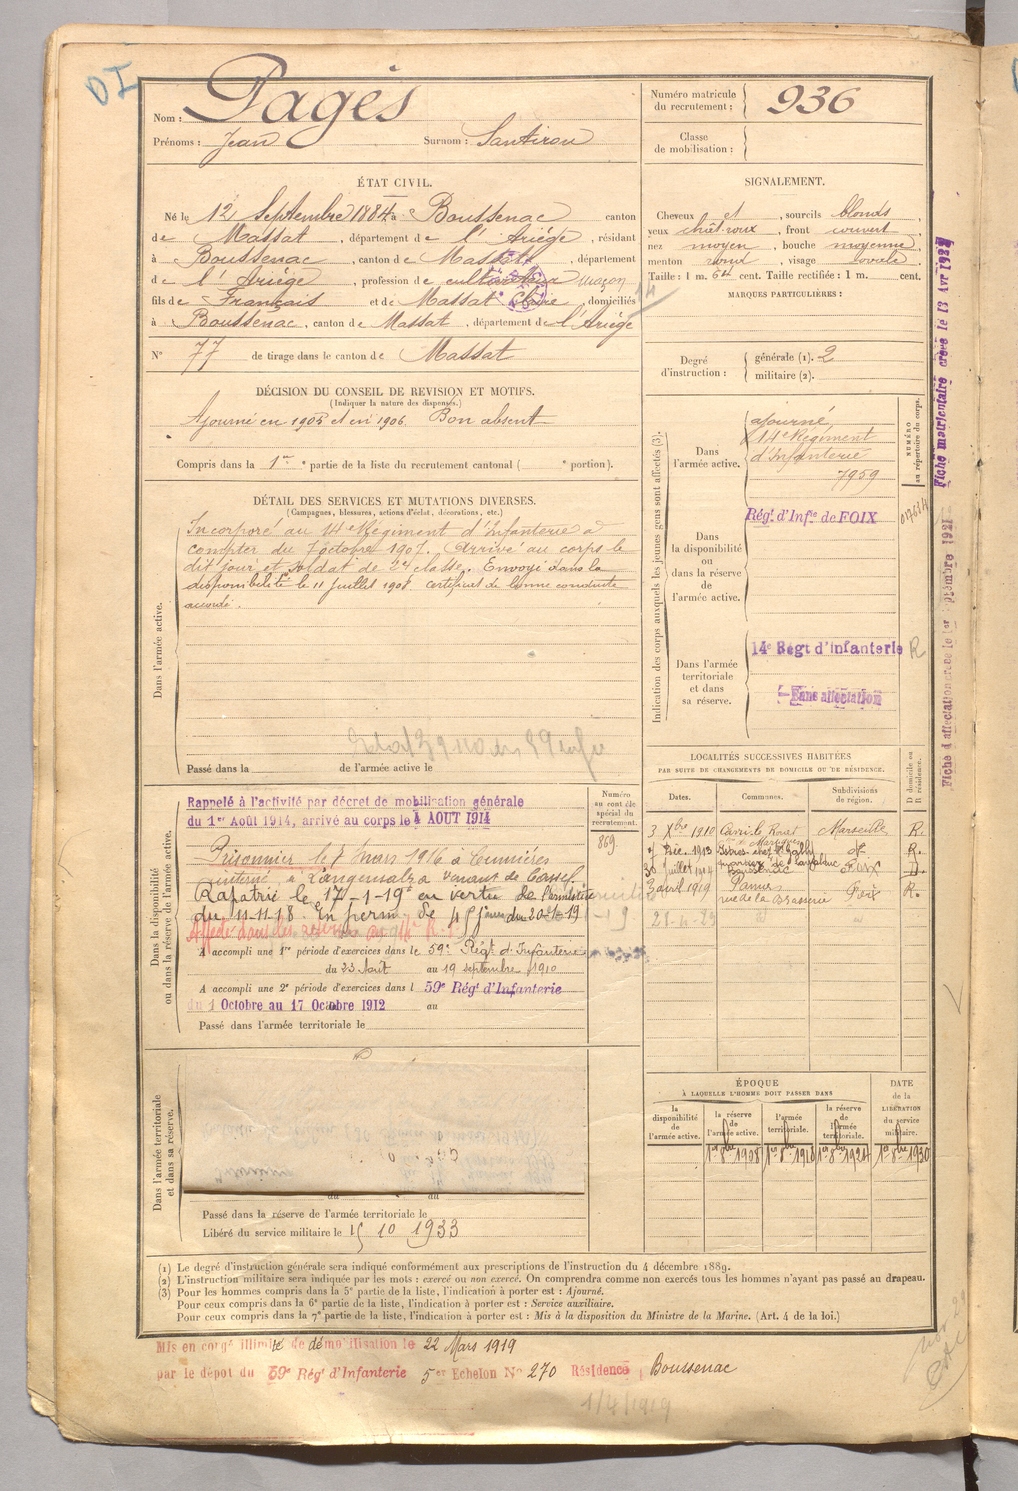 DI
Nom : Pagès
Prénoms : Jean Surnom : Santirou
ÉTAT CIVIL.
Né le 12 Septembre 1884 à Boussenac canton
de Massat, département de l'Ariège, résidant
à Boussenac, canton de Massat, département
de l'Ariège, profession de cultivateur maçon
fils de Français et de Massat Claire, domiciliés
à Boussenac, canton de Massat, département de l'Ariège
N° 77 de tirage dans le canton de Massat
DÉCISION DU CONSEIL DE REVISION ET MOTIFS.
(Indiquer la nature des dispenses.)
Ajourné en 1905 et en 1906. Bon absent
Compris dans la 1re partie de la liste du recrutement cantonal ( portion).
DÉTAIL DES SERVICES ET MUTATIONS DIVERSES.
(Campagnes, blessures, actions d'éclat, décorations, etc.)
Dans l'armée active.
Incorporé au 14e Régiment d'Infanterie à
compter du 7 octobre 1907. Arrivé au corps le
dit jour et soldat de 2e classe. Envoyé dans la
disponibilité le 11 Juillet 1908. Certificat de bonne conduite
accordé.
Passé dans la de l'armée active le
Dans la disponibilité
ou dans la réserve de l'armée active.
Rappelé à l'activité par décret de mobilisation générale
du 1er Août 1914, arrivé au corps le 4 AOUT 1914
Prisonnier le 7 mars 1916 à Cumières
interné à Langensalza venant de Cassel
Rapatrié le 17-1-19 en vertu de l'armistice
du 11-11-18. En perm. de 45 jours du 20-1-19
A accompli une 1re période d'exercices dans le 59e Régt d'Infanterie
du 23 Août au 19 septembre 1910
A accompli une 2e période d'exercices dans l 59e Régt d'Infanterie
du 1 Octobre au 17 Octobre 1912 au
Passé dans l'armée territoriale le
Numéro
au contrôle
spécial du
recrutement.
869
Dans l'armée territoriale
et dans sa réserve.
du au
Passé dans la réserve de l'armée territoriale le
Libéré du service militaire le 15 10 1933
Numéro matricule
du recrutement : 936
Classe
de mobilisation :
SIGNALEMENT.
Cheveux et, sourcils blonds,
yeux chât. roux, front couvert
nez moyen, bouche moyenne,
menton rond, visage ovale
Taille : 1 m. 64 cent. Taille rectifiée : 1 m. cent.
MARQUES PARTICULIÈRES :
Degré
d'instruction :
générale (1). 2
militaire (2).
Indication des corps auxquels les jeunes gens sont affectés (3).
NUMÉRO
au répertoire du corps.
Dans
l'armée active.
ajourné
14e Régiment
d'Infanterie
7959
Régt d'Infie de FOIX
017674
Dans
la disponibilité
ou
dans la réserve
de
l'armée active.
Dans l'armée
territoriale
et dans
sa réserve.
14e Régt d'infanterie R
Sans affectation
LOCALITÉS SUCCESSIVES HABITÉES
PAR SUITE DE CHANGEMENTS DE DOMICILE OU DE RÉSIDENCE.
Dates. Communes. Subdivisions
de région.
D domicile ou
R résidence.
3 Xbre 1910 Marseille R.
1913 R.
30 juillet 1914 Boussenac Foix D.
3 avril 1919 Pamiers Foix R.
rue de la Brasserie
ÉPOQUE
À LAQUELLE L'HOMME DOIT PASSER DANS
DATE
de la
LIBÉRATION
du service
militaire.
la
disponibilité
de
l'armée active.
la réserve
de
l'armée active.
l'armée
territoriale.
la réserve
de
l'armée
territoriale.
1er 8bre 1908 1er 8bre 1918 1er 8bre 1924 1er 8bre 1930
Fiche matriculaire créée le 13 Avr
Fiche d'affectation créée le 1er Septembre 1921
(1) Le degré d'instruction générale sera indiqué conformément aux prescriptions de l'instruction du 4 décembre 1889.
(2) L'instruction militaire sera indiquée par les mots : exercé ou non exercé. On comprendra comme non exercés tous les hommes n'ayant pas passé au drapeau.
(3) Pour les hommes compris dans la 5e partie de la liste, l'indication à porter est : Ajourné.
Pour ceux compris dans la 6e partie de la liste, l'indication à porter est : Service auxiliaire.
Pour ceux compris dans la 7e partie de la liste, l'indication à porter est : Mis à la disposition du Ministre de la Marine. (Art. 4 de la loi.)
Mis en congé illimité de démobilisation le 22 Mars 1919
par le dépot du 59e Régt d'Infanterie 5er Echelon N° 270 Résidence Boussenac
1/4/1919